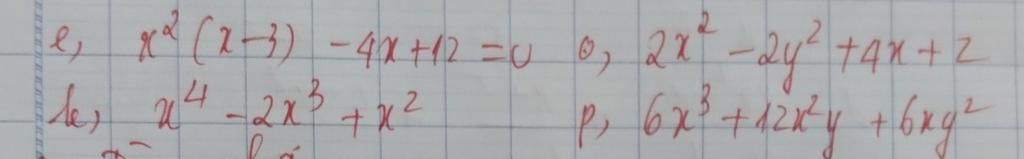 e, x² (x-3) - 4x + 12 = 0 o, 2x² - 2y² + 4x + 2
k, x⁴ - 2x³ + x² p, 6x³ + 12x²y + 6xy²